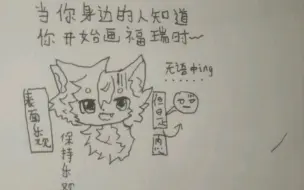 当你身边的人知道
你开始画福瑞时~
无语中ing
表面乐观
保持乐观